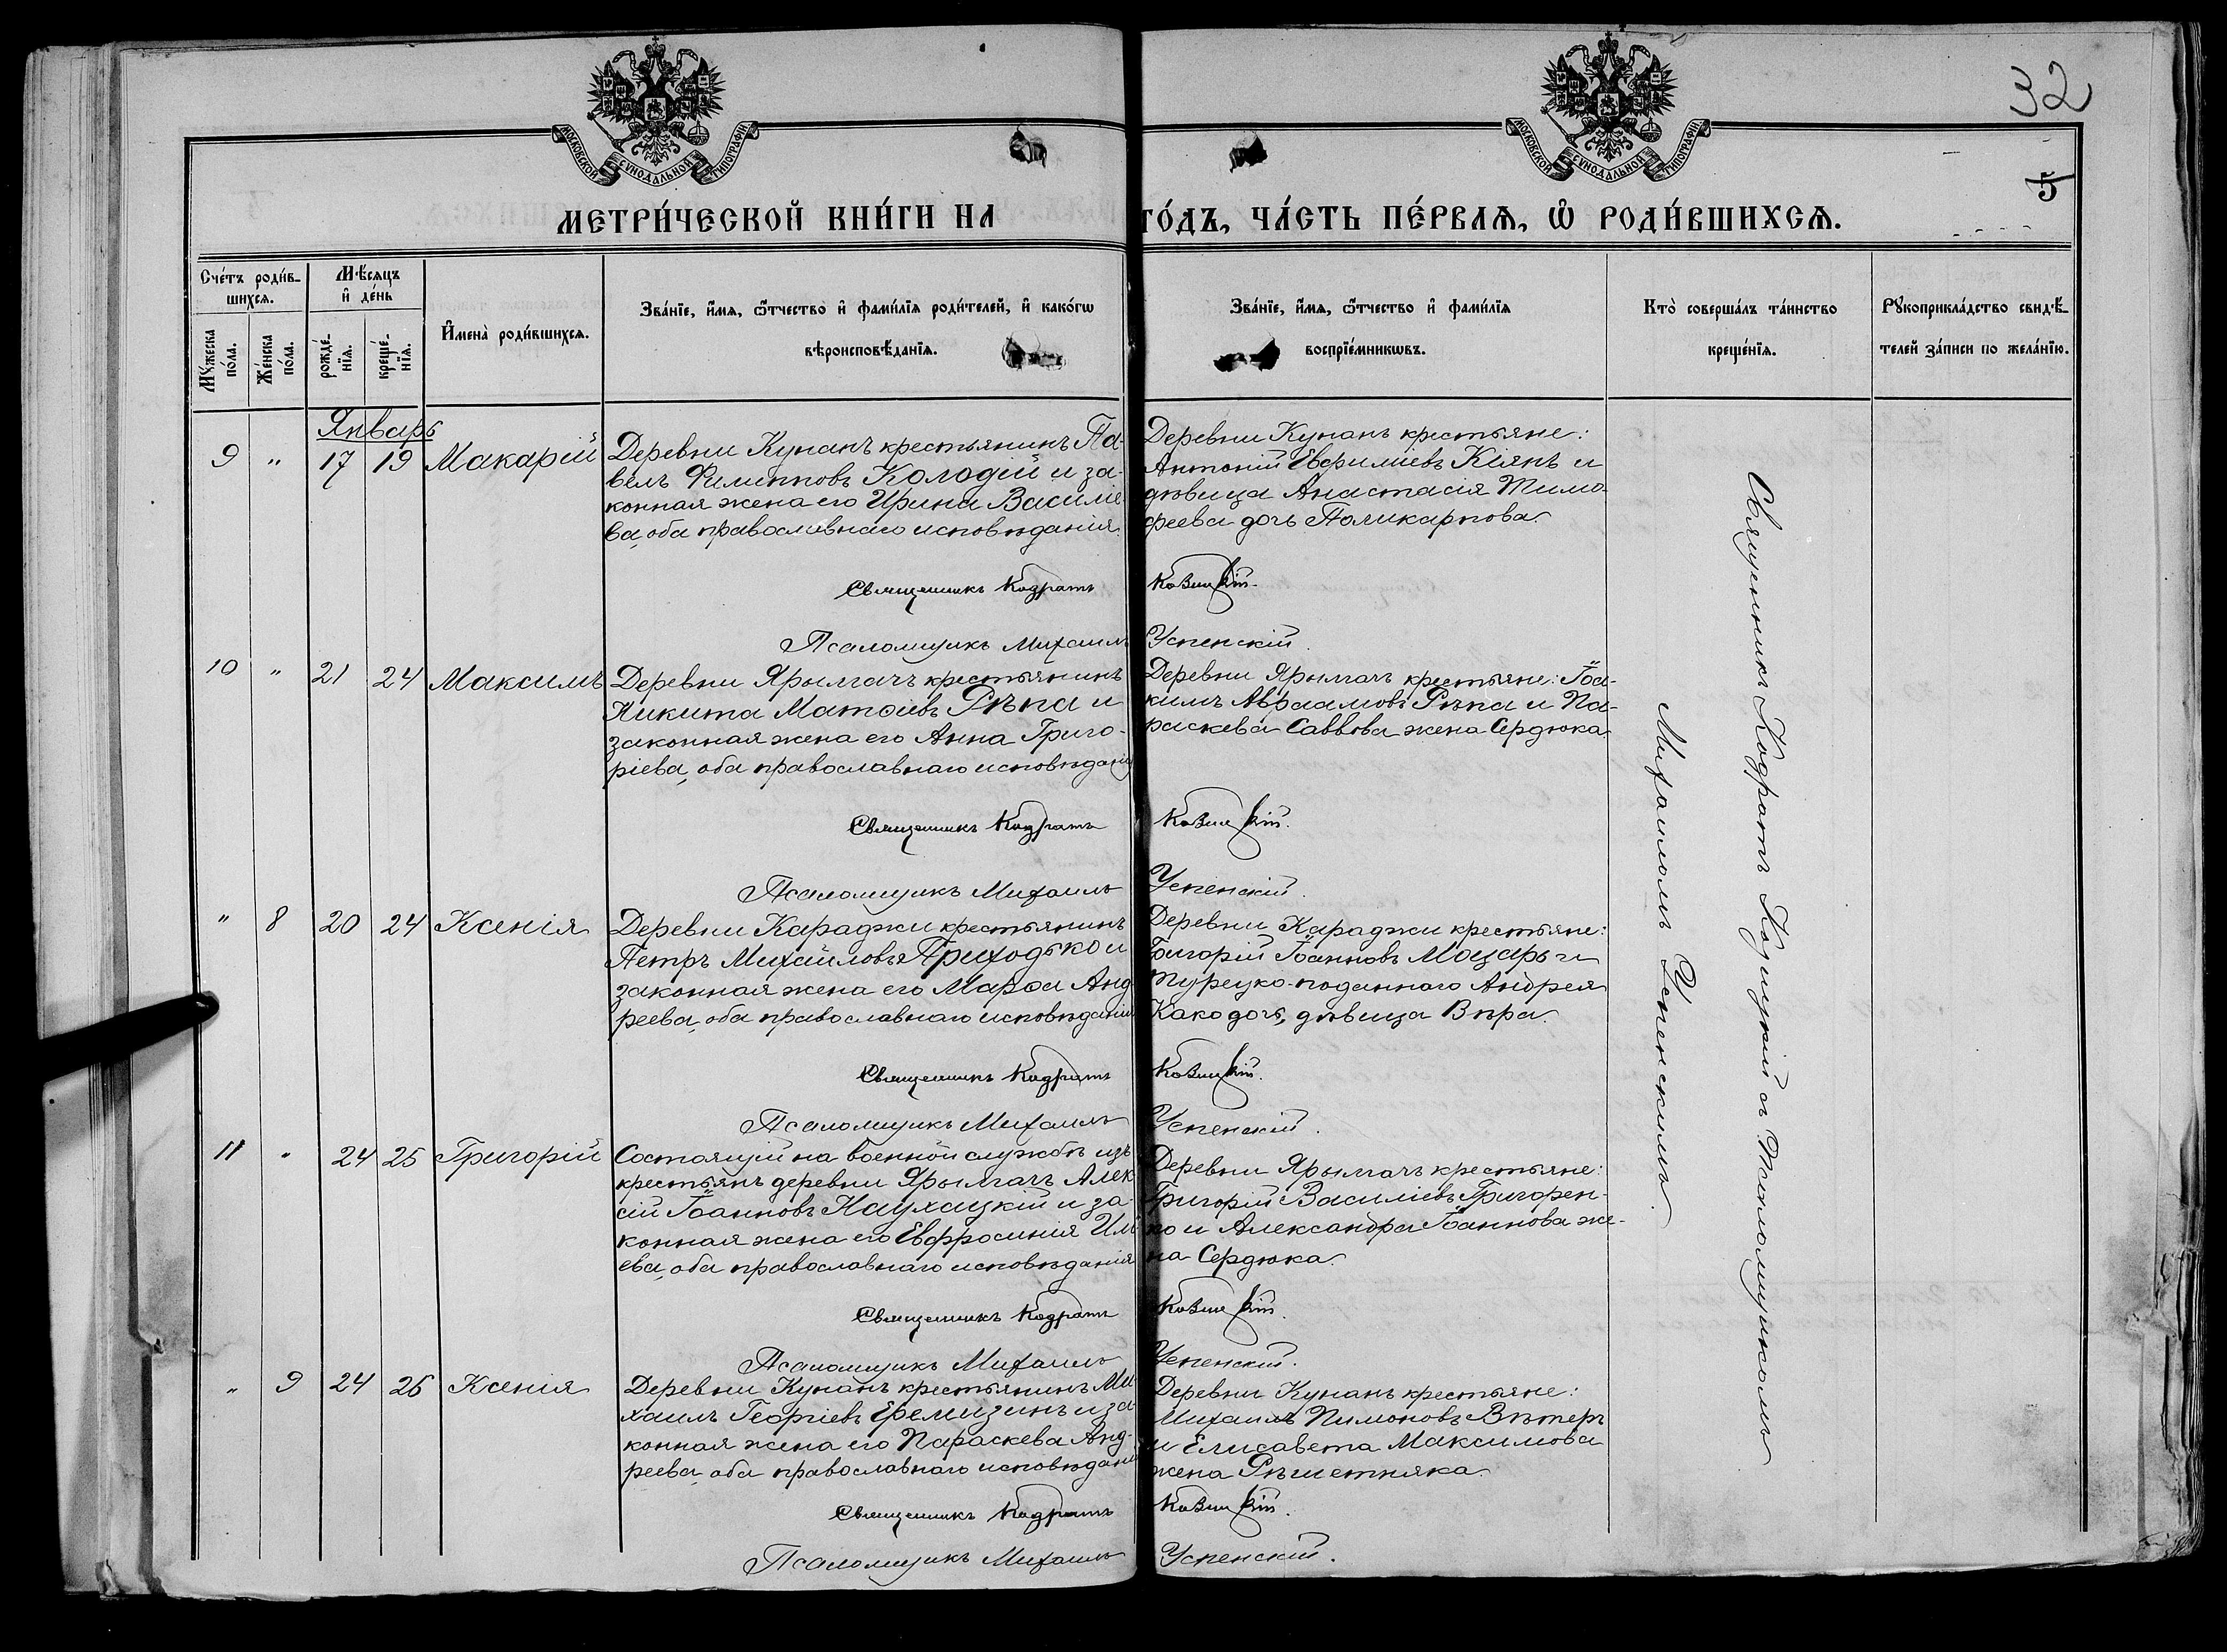 32
МОСКОВСКОЙ СѴНОДАЛЬНОЙ ТИПОГРАФІИ
МОСКОВСКОЙ СѴНОДАЛЬНОЙ ТИПОГРАФІИ
5
МЕТРИ́ЧЕСКОЙ КНИ́ГИ НА ГО́ДЪ, ЧА́СТЬ ПЕ́РВАѦ, Ѡ РОДИ́ВШИХСѦ.
Сче́тъ роди́в-
шихсѧ.
Мꙋ́жеска по́ла.
Же́нска по́ла.
Мѣ́сѧцъ
и҆ де́нь
рожде́-
нїѧ.
креще́-
нїѧ.
И҆мена̀ роди́вшихсѧ.
Зва́нїе, и҆́мѧ, ѻ҆́тчество и҆ фами́лїѧ роди́телей, и҆ како́гѡ
вѣроисповѣ́данїѧ.
Зва́нїе, и҆́мѧ, ѻ҆́тчество и҆ фами́лїѧ
воспрїе́мникѡвъ.
Кто̀ соверша́лъ та́инство
креще́нїѧ.
Рꙋкоприкла́дство свидѣ́-
телей за́писи по жела́нїю.
Январь
9 " 17 19 Макарій
Деревни Кунанъ крестьянинъ Па-
велъ Филипповъ Колодій и за-
конная жена его Ирина Василіе
ва, оба православнаго исповѣданія.
Деревни Кунанъ крестьяне:
Антоній Евфиміевъ Кіянъ и
дѣвица Анастасія Тимо-
феева дочь Поликарпова.
Священникъ Кодратъ Козицкій.
Псаломщикъ Михаилъ Успенскій.
10 " 21 24 Максимъ
Деревни Ярылгачъ крестьянинъ
Никита Матѳіевъ Рѣпа и
законная жена его Анна Григо-
ріева, оба православнаго исповѣданія
Деревни Ярылгачъ крестьяне: Іоа-
кимъ Авраамовъ Рѣпа и Па-
раскева Саввова жена Сердюка
Священникъ Кодратъ Козицкій.
Псаломщикъ Михаилъ Успенскій.
" 8 20 24 Ксенія
Деревни Караджи крестьянинъ
Петръ Михайловъ Приходько и
законная жена его Марѳа Анд
реева, оба православнаго исповѣданія
Деревни Караджи крестьяне:
Григорій Іоанновъ Моцарь и
турецко-подданнаго Андрея
Како дочь, дѣвица Вѣра.
Священникъ Кодратъ Козицкій.
Псаломщикъ Михаилъ Успенскій.
11 " 24 25 Григорій
Состоящій на военной службѣ изъ
крестьянъ деревни Ярылгачъ Алек
сій Іоанновъ Наухацкій и за-
конная жена его Евфросинія Илі
ева, оба православнаго исповѣданія
Деревни Ярылгачъ крестьяне:
Григорій Василіевъ Григорен-
ко и Александра Іоаннова же-
на Сердюка.
Священникъ Кодратъ Козицкій.
Псаломщикъ Михаилъ Успенскій.
" 9 24 26 Ксенія
Деревни Кунанъ крестьянинъ Ми
хаилъ Георгіевъ Еремизинъ и за
конная жена его Параскева Анд-
реева, оба православнаго исповѣданія
Деревни Кунанъ крестьяне:
Михаилъ Пимоновъ Вѣтеръ
и Елисавета Максимова
жена Рѣшетняка.
Священникъ Кодратъ Козицкій.
Псаломщикъ Михаилъ Успенскій.
Священникъ Кодратъ Козицкій съ псаломщикомъ
Михаиломъ Успенскимъ.